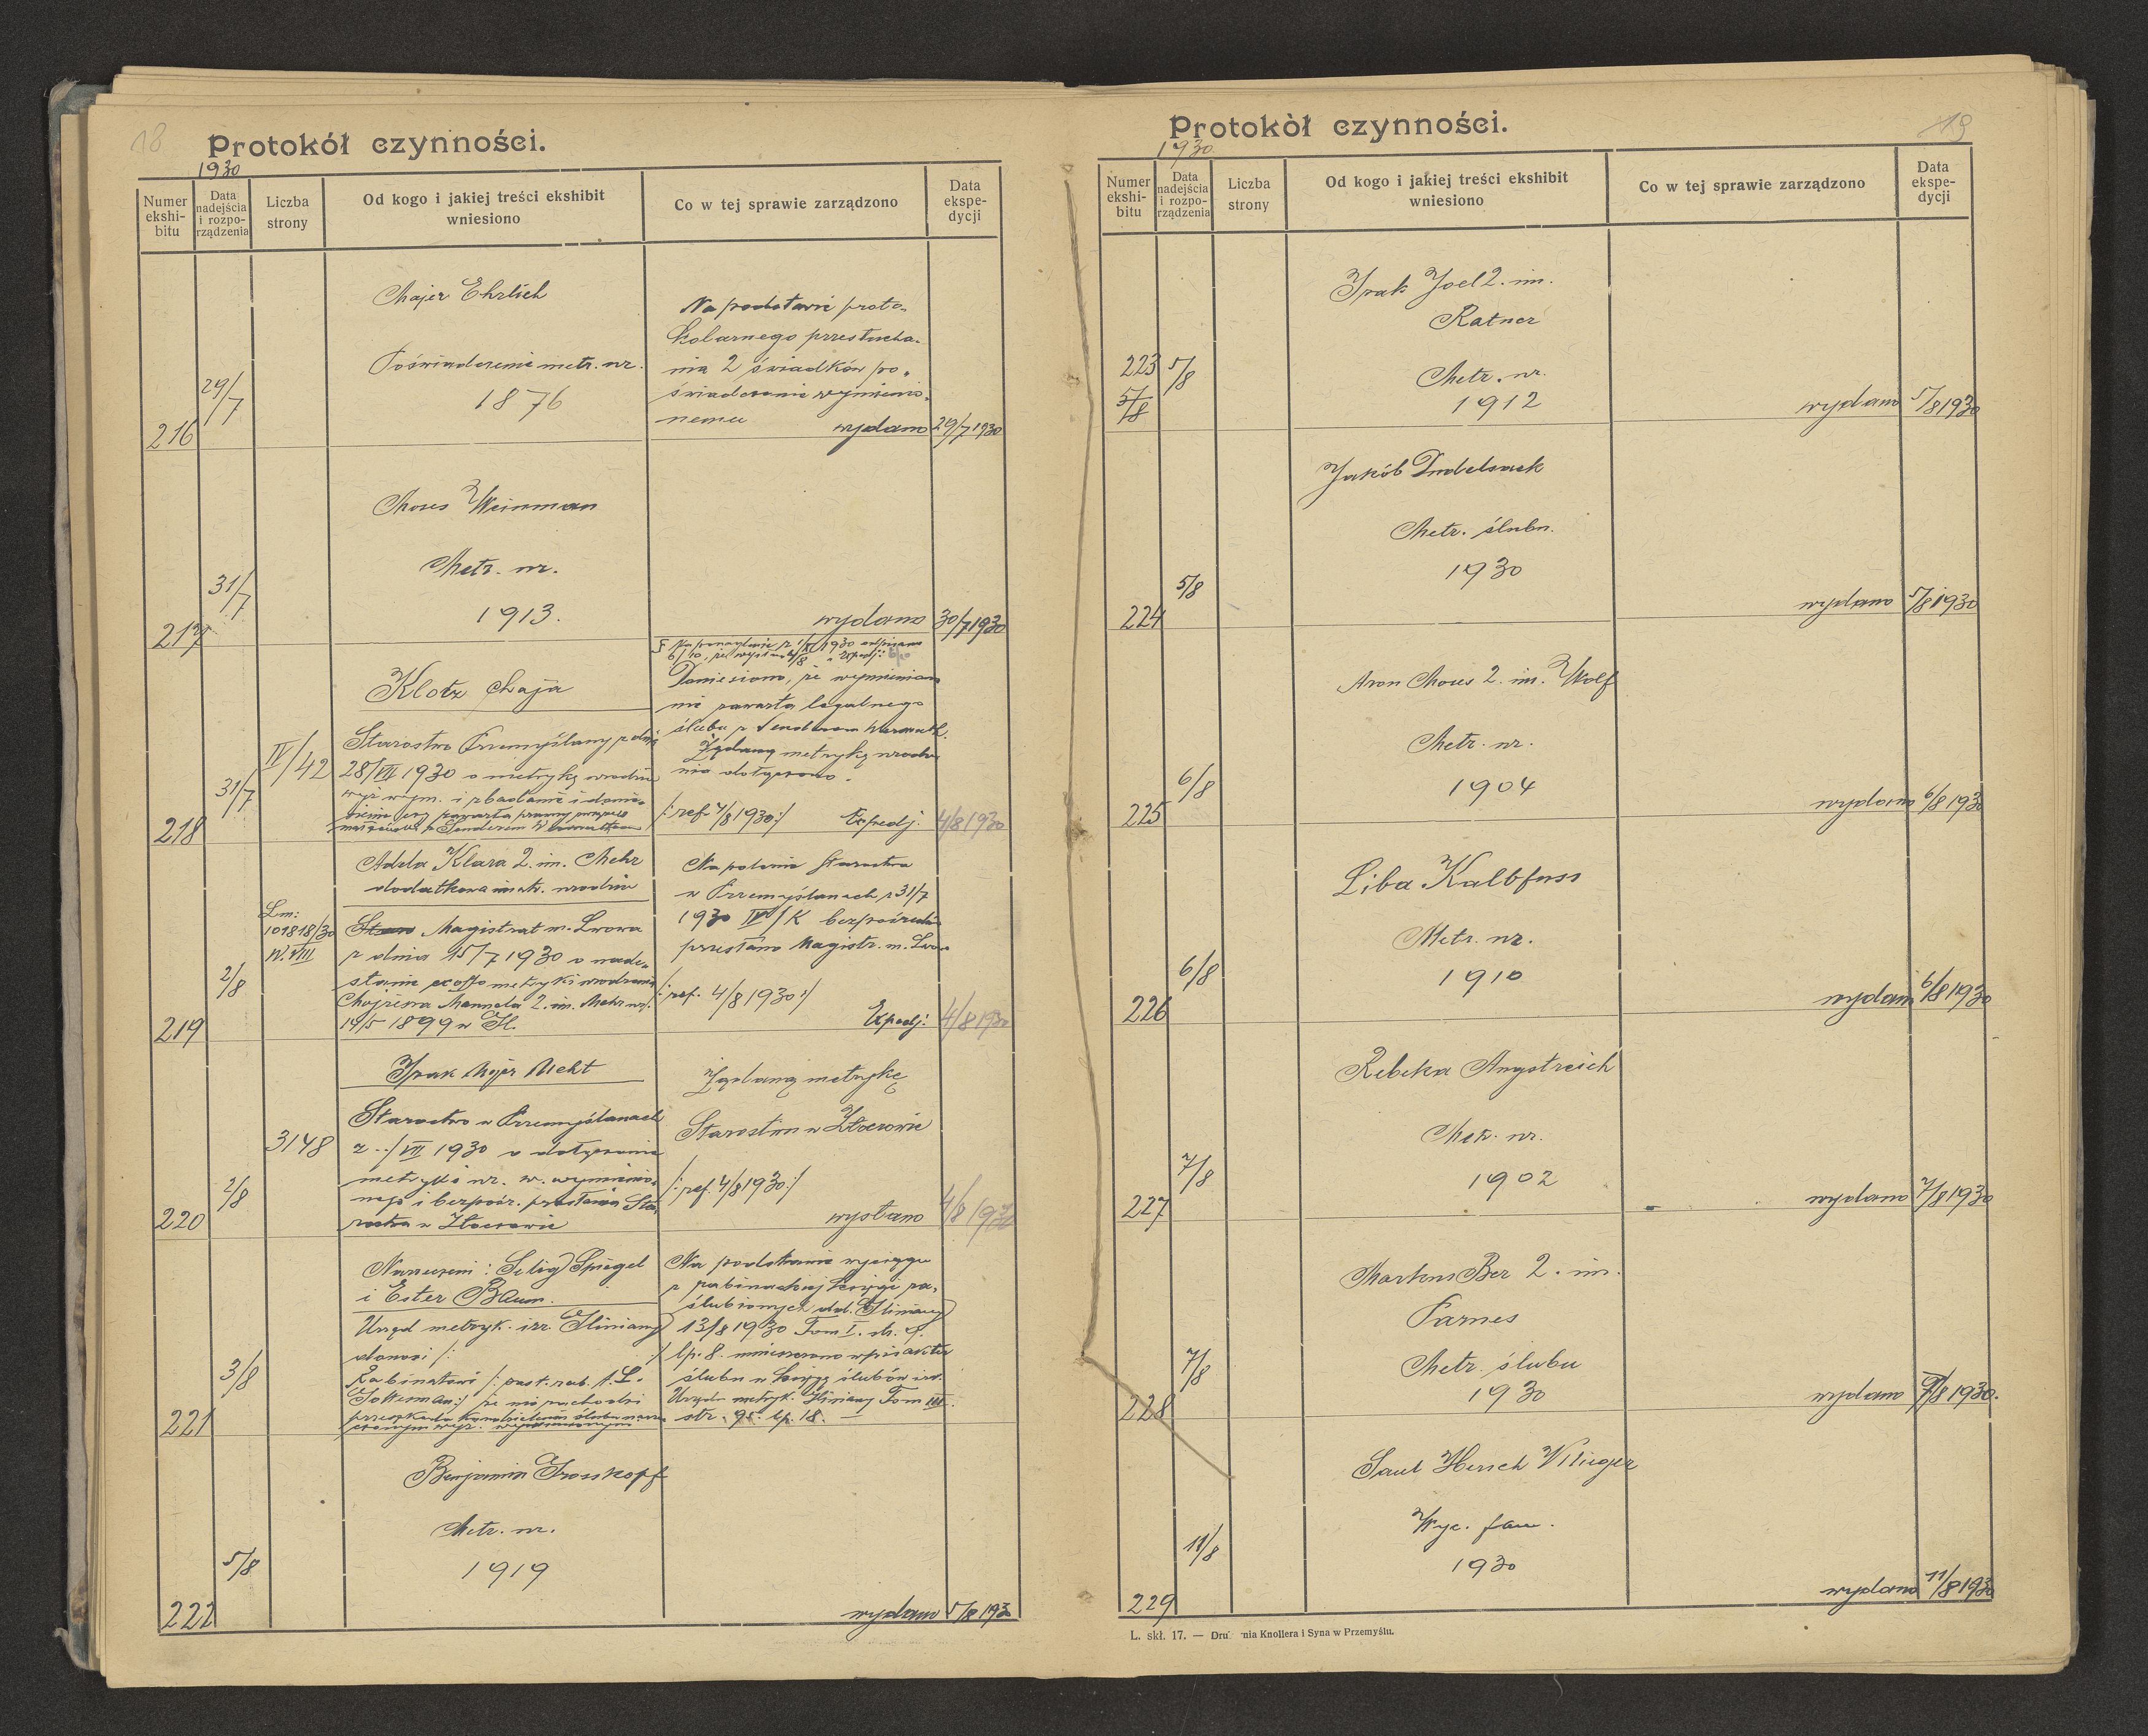 18
Protokół czynności.
1930
Numer ekshi-bitu
Data nadejścia i rozpo-rządzenia
Liczba strony
Od kogo i jakiej treści ekshibit wniesiono
Co w tej sprawie zarządzono
Data ekspe-dycji
Majer Ehrlich
Poświadczenie metr. ur.
1876
Na podstawie proto-
kolarnego przesłucha-
nia 2 świadków po-
świadczenie wymienio-
nemu
wydano 29/7 1930
29/7
216
Moses Weinman
Metr. ur.
1913.
31/7
217
wydano 30/7 1930
Klotz Chaja
Starostwo Przemyślany z dnia
28/VII 1930 o metrykę urodzin
wyż wym. i zbadanie i donie-
IV/42
31/7
218
Doniesiono, że wymieniona
nie zawarła legalnego
ślubu z
Żądaną metrykę urodze
nia dołączono.
/: ref. 4/8 1930 :/ Expedj. 4/8 1930
Adela Klara 2. im. Mehr
dodatkowa metr. urodzin
Lm:
101818/30
W. VIII
Magistrat m. Lwowa
z dnia 15/7 1930 o nade-
słanie ex offo metryki urodzenia
Mehr ur.
14/5 1899 w Gl.
2/8
219
Na polecenie Starostwa
w Przemyślanach z 31/7
1930 IV/K bezpośrednio
przesłano Magistr. m. Lwowa
/: ref. 4/8 1930 :/
Expedj: 4/8 1930
Izak Majer Mekt
Starostwo w Przemyślanach
z ../VII 1930 o dołączenie
metryki ur. w. wymienio-
nego i bezpośr. przesłanie Sta-
rostwa w Złoczowie
3148
2/8
220
Żądaną metrykę
Starostwu w Złoczowie
/: ref. 4/8 1930 :/
wysłano 4/8 1930
Narzeczeni: Selig Spiegel
i Ester Baum.
Urząd metryk. izr. Gliniany
donosi /: :/
Rabinatowi /: zast. rab. A. L.
że nie zachodzi
3/8
221
Na podstawie wyciągu
z rabinackiej księgi za-
ślubionych dat. Gliniany
13/8 1930 Tom I. str. 9.
lp. 8. umieszczono wpis aktu
ślubu w księgę ślubów izr.
Urzędu metryk. Gliniany Tom III.
str. 95. lp. 18. —
Benjamin Grosskopf
Metr. ur.
1919
5/8
222
wydano 5/8 1930
19
Protokół czynności.
1930
Numer ekshi-bitu
Data nadejścia i rozpo-rządzenia
Liczba strony
Od kogo i jakiej treści ekshibit wniesiono
Co w tej sprawie zarządzono
Data ekspe-dycji
Izak Joel 2. im.
Ratner
Metr. ur.
1912
223 5/8
5/8
wydano 5/8 1930
Jakób
Metr. ślubu.
1930
5/8
224
wydano 5/8 1930
Aron Moses 2. im. Wolf
Metr. ur.
1904
6/8
225
wydano 6/8 1930
Liba Kalbfuss
Metr. ur.
1910
6/8
226
wydano 6/8 1930
Rebeka Angstreich
Metr. ur.
1902
7/8
227
wydano 7/8 1930
Markus Ber 2. im.
Parnes
Metr. ślubu
1930
7/8
228
wydano 7/8 1930.
Saul Hersch
Wyc. fam.
1930
11/8
229
wydano 11/8 1930
L. skł. 17. — Dru nia Knollera i Syna w Przemyślu.